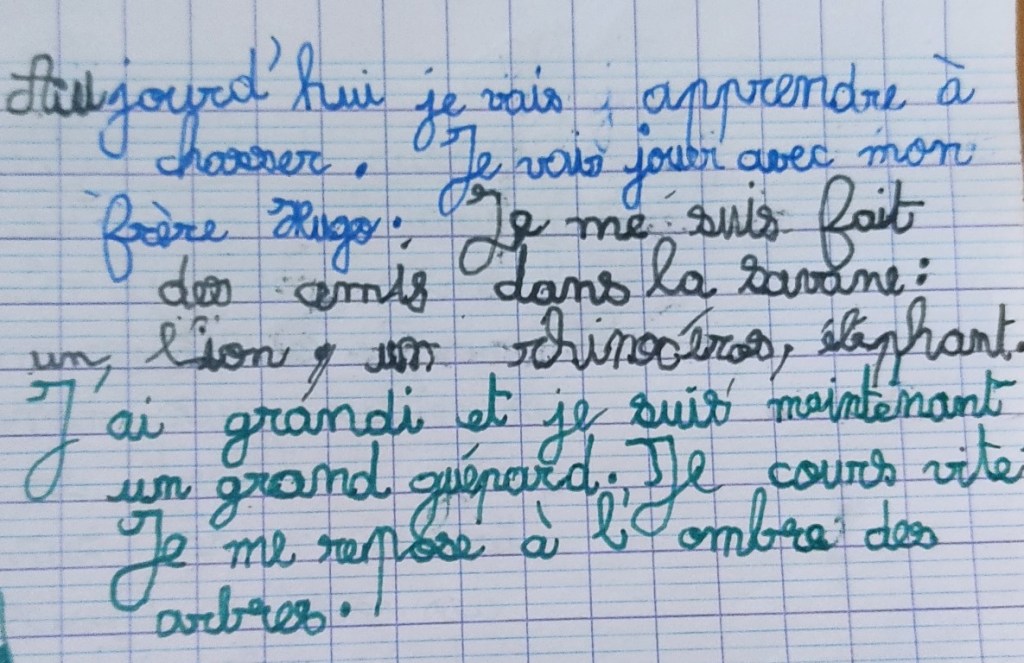 Aujourd'hui je vais apprendre à
chasser. Je vais jouer avec mon
frère Hugo. Je me suis fait
des amis dans la savane :
un, lion, un rhinocéros, éléphant.
J'ai grandi et je suis maintenant
un grand guépard. Je cours vite
Je me repose à l'ombre des
arbres.